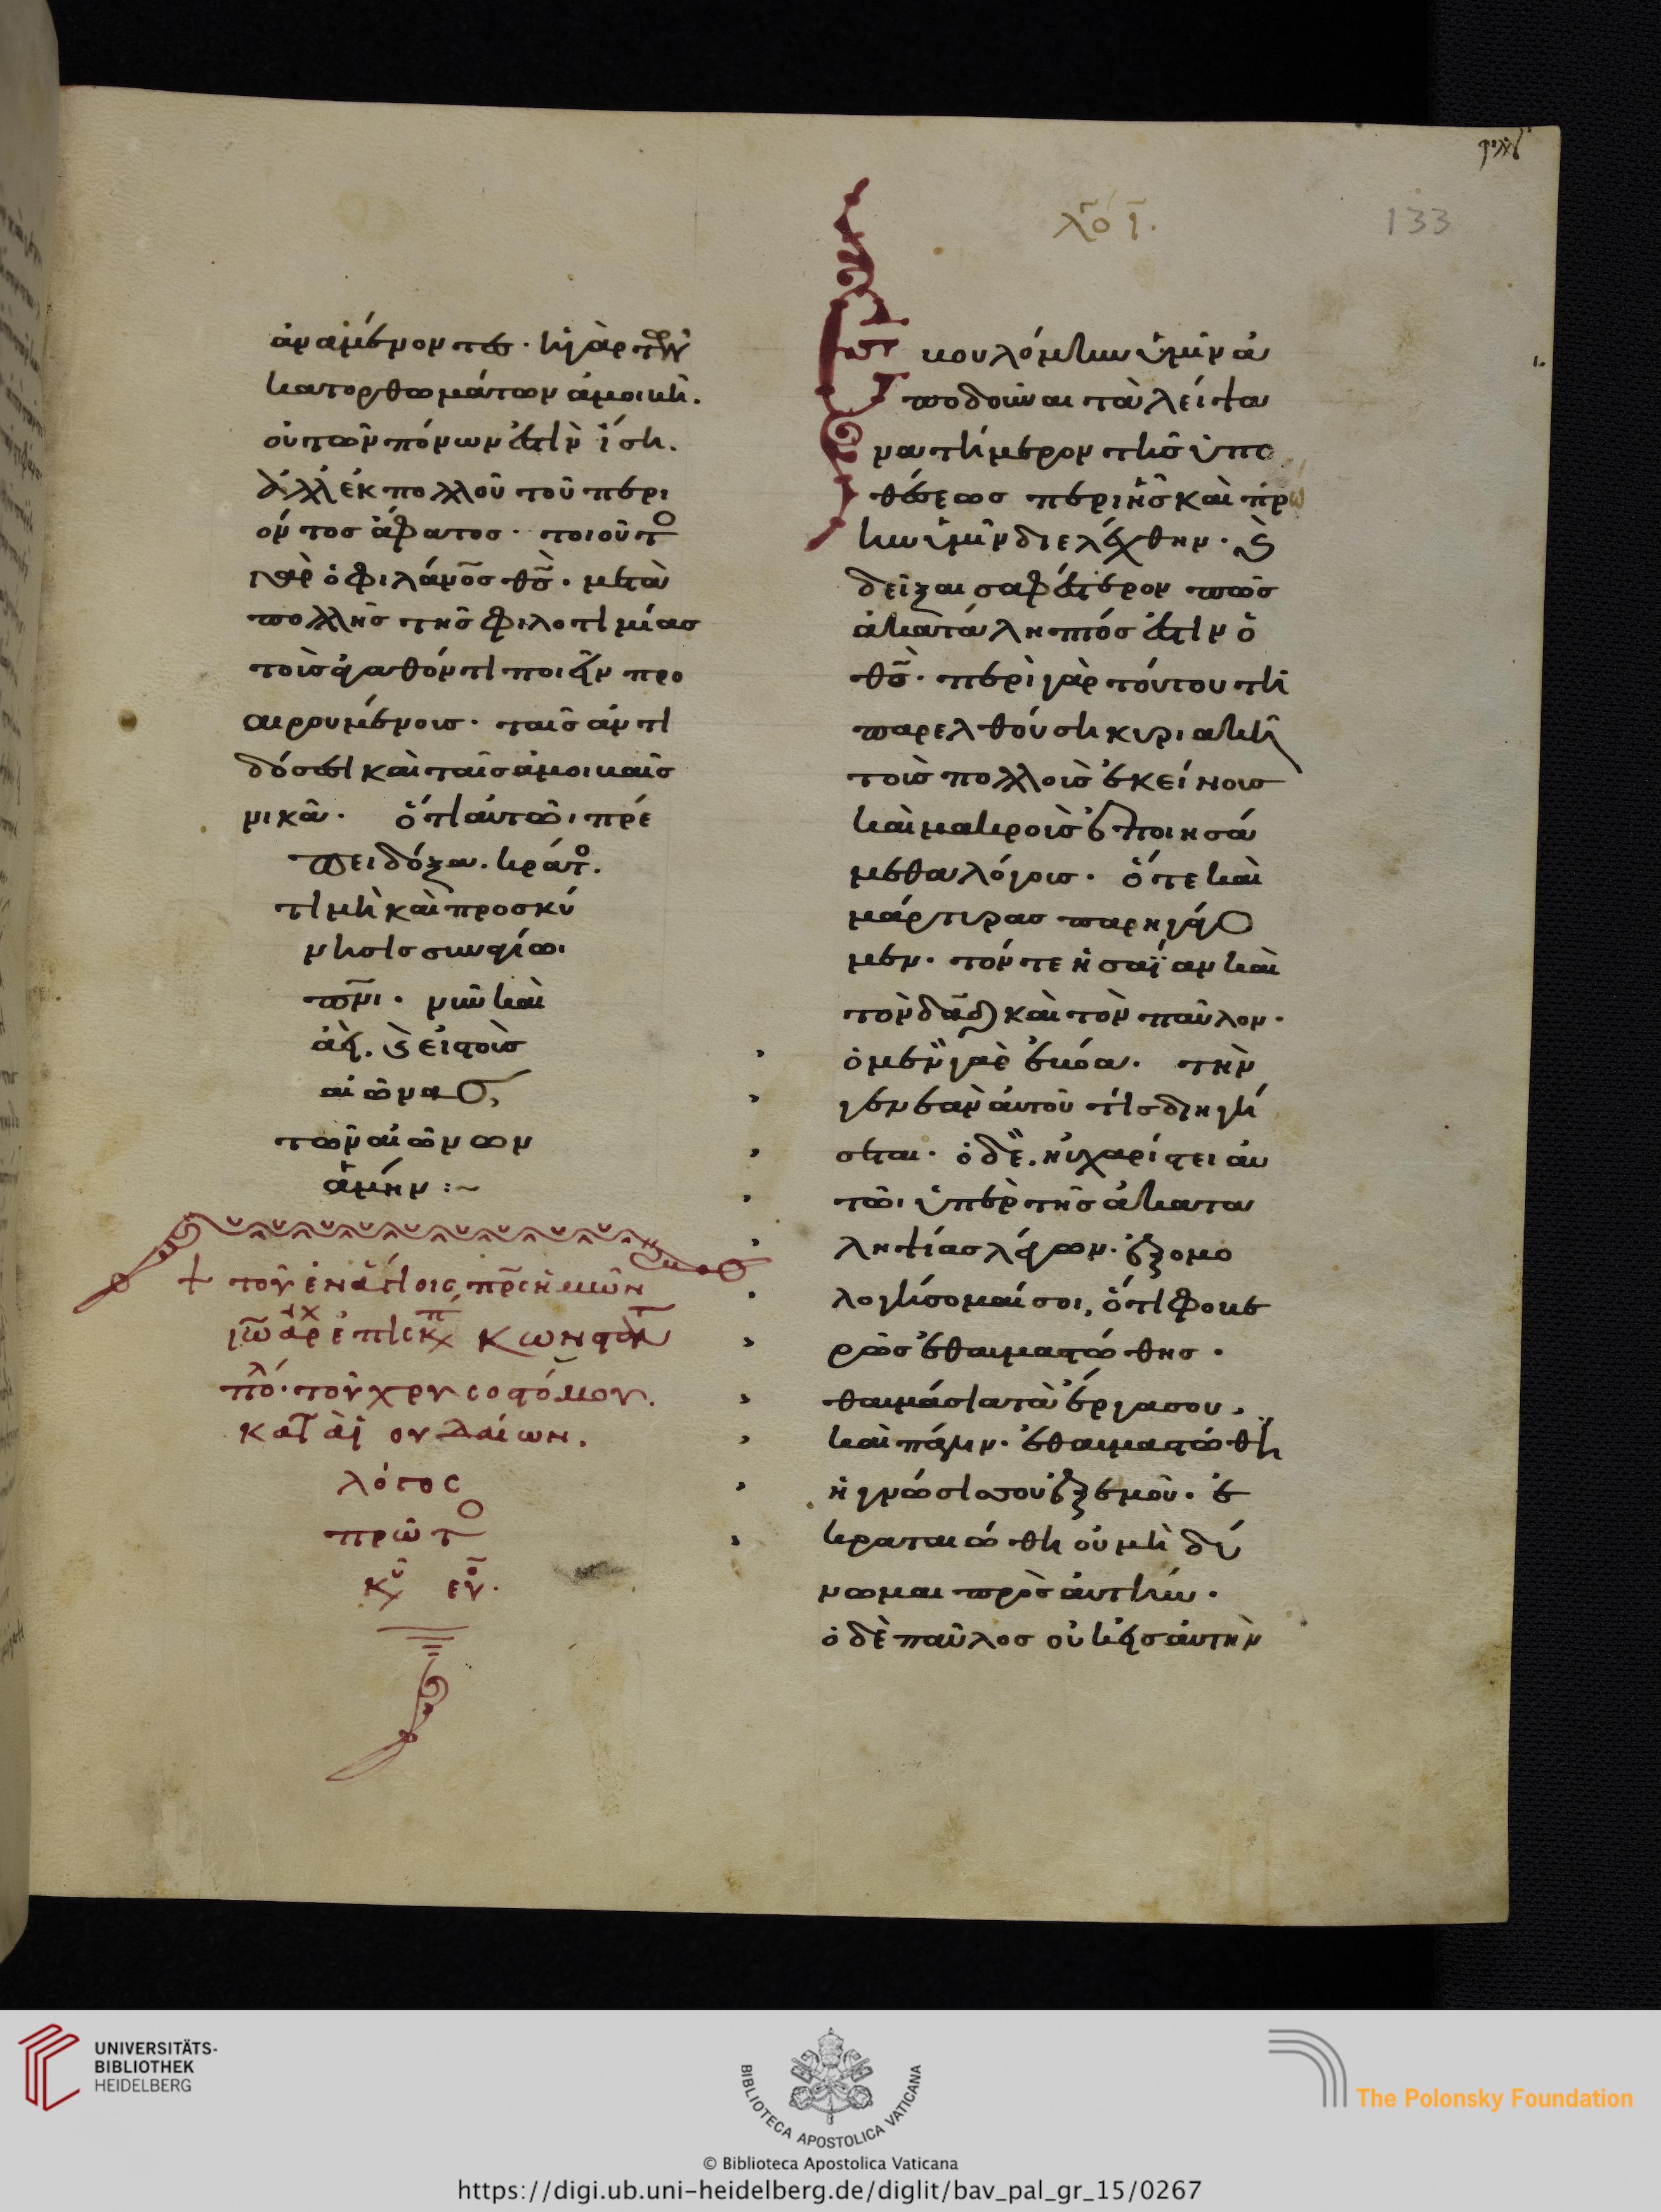 λο ι.
133
ἀναμένοντες· ἡ γὰρ τῶν
κατορθωμάτων ἀμοιβὴ.
οὐ τῶν πόνων ἐστὶν ἴση.
ἀλλ' ἐκ πολλοῦ τοῦ περι
όντος ἄφατος· ποιοῦτο
γὰρ ὁ φιλάνος θς· μετὰ
πολλῆς τῆς φιλοτιμίας
τοῖς ἀγαθόν τι ποιεῖν προ
αιρουμένοις· ταῖς ἀντι
δόσεσι καὶ ταῖς ἀμοιβαῖς
νικᾶν. ὅτι αὐτῶι πρέ
πει δόξα. κράτο.
τιμὴ καὶ προσκύ
νησις σὺν ἁγίωι
πνι· νῦν καὶ
ἀεὶ. καὶ εἰς τοὺς
αἰῶνας,
τῶν αἰώνων
ἀμήν :~
+ τοῦ ἐν ἁγίοις πρς ἡμῶν
ιω αρχ ἐπισκ κωνστν
πόλ· τοῦ χρυσοστόμου.
κατὰ ἰουδαίων.
λόγος
πρῶτο
κυ ευ.
Ἐβουλόμην ὑμῖν ἀ
ποδοῦναι τὰ λείψα
να τήμερον τῆς ὑπο
θέσεως περὶ ἧς καὶ πρώ
ην ὑμῖν διελέχθην· καὶ
δεῖξαι σαφέστερον πῶς
ἀκατάληπτός ἐστιν ὁ
θς· περὶ γὰρ τούτου τῆ
παρελθούση κυριακῆ
τοὺς πολλοὺς ἐκείνους
καὶ μακροὺς ἐποιησά
μεθα λόγους· ὅτε καὶ
μάρτυρας παρηγάγο
μεν· τόν τε ἡσαΐαν καὶ
τὸν δαδ καὶ τὸν παῦλον·
ὁ μὲν γὰρ ἐβόα· τὴν
γενεὰν αὐτοῦ τίς διηγή
σεται· ὁ δὲ. ηὐχαρίστει αὐ
τῶι ὑπὲρ τῆς ἀκατα
ληψίας λέγων· ἐξομο
λογήσομαί σοι, ὅτι φοβε
ρῶς ἐθαυμαστώθης·
θαυμάσια τὰ ἔργα σου,
καὶ πάλιν· ἐθαυμαστώθη
ἡ γνῶσίς σου ἐξ ἐμοῦ· ἐ
κραταιώθη οὐ μὴ δύ
νωμαι πρὸς αὐτήν·
ὁ δὲ παῦλος οὐκ εἰς αὐτὴν
UNIVERSITÄTS-
BIBLIOTHEK
HEIDELBERG
BIBLIOTECA APOSTOLICA VATICANA
The Polonsky Foundation
© Biblioteca Apostolica Vaticana
https://digi.ub.uni-heidelberg.de/diglit/bav_pal_gr_15/0267